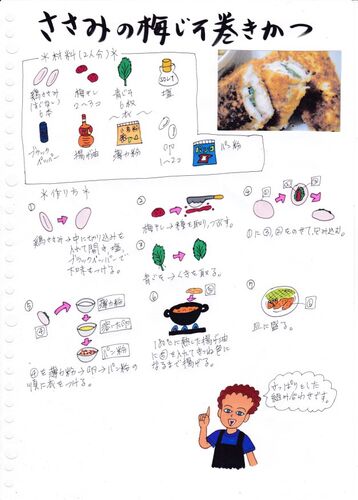 ささみの梅じそ巻きかつ
*材料(2人分)*
鶏ささみ
(すじなし)
6本
梅干し
2〜3コ
青じそ
6枚
塩
SALT
ブラック
ペッパー
揚げ油
小麦粉
薄力粉
卵
1〜2コ
パン粉
*作り方*
①
鶏ささみ→中に切り込みを
入れて開き、塩、
ブラックペッパーで
下味をつける。
②
梅干し→種を取り、つぶす。
③
青じそ→くきを取る。
④
①に③、②をのせて包み込む。
⑤
薄力粉
溶いた卵
パン粉
④を薄力粉→卵→パン粉の
順に衣をつける。
⑥
180℃に熱した揚げ油
に⑤を入れてきつね色に
なるまで揚げる。
⑦
皿に盛る。
さっぱりとした
組み合わせです。